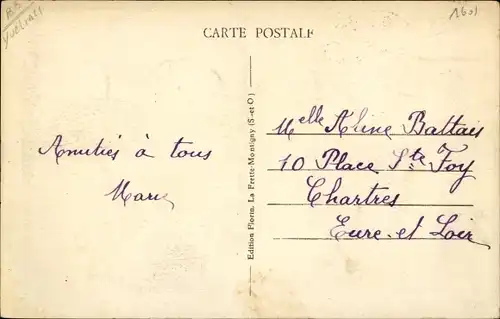 1601
CARTE POSTALE
Amitiés à tous
Marie
Edition Florin. La Frette-Montigny (S-et-O)
Melle Aline Battais
10 Place Ste Foy
Chartres
Eure-et Loir